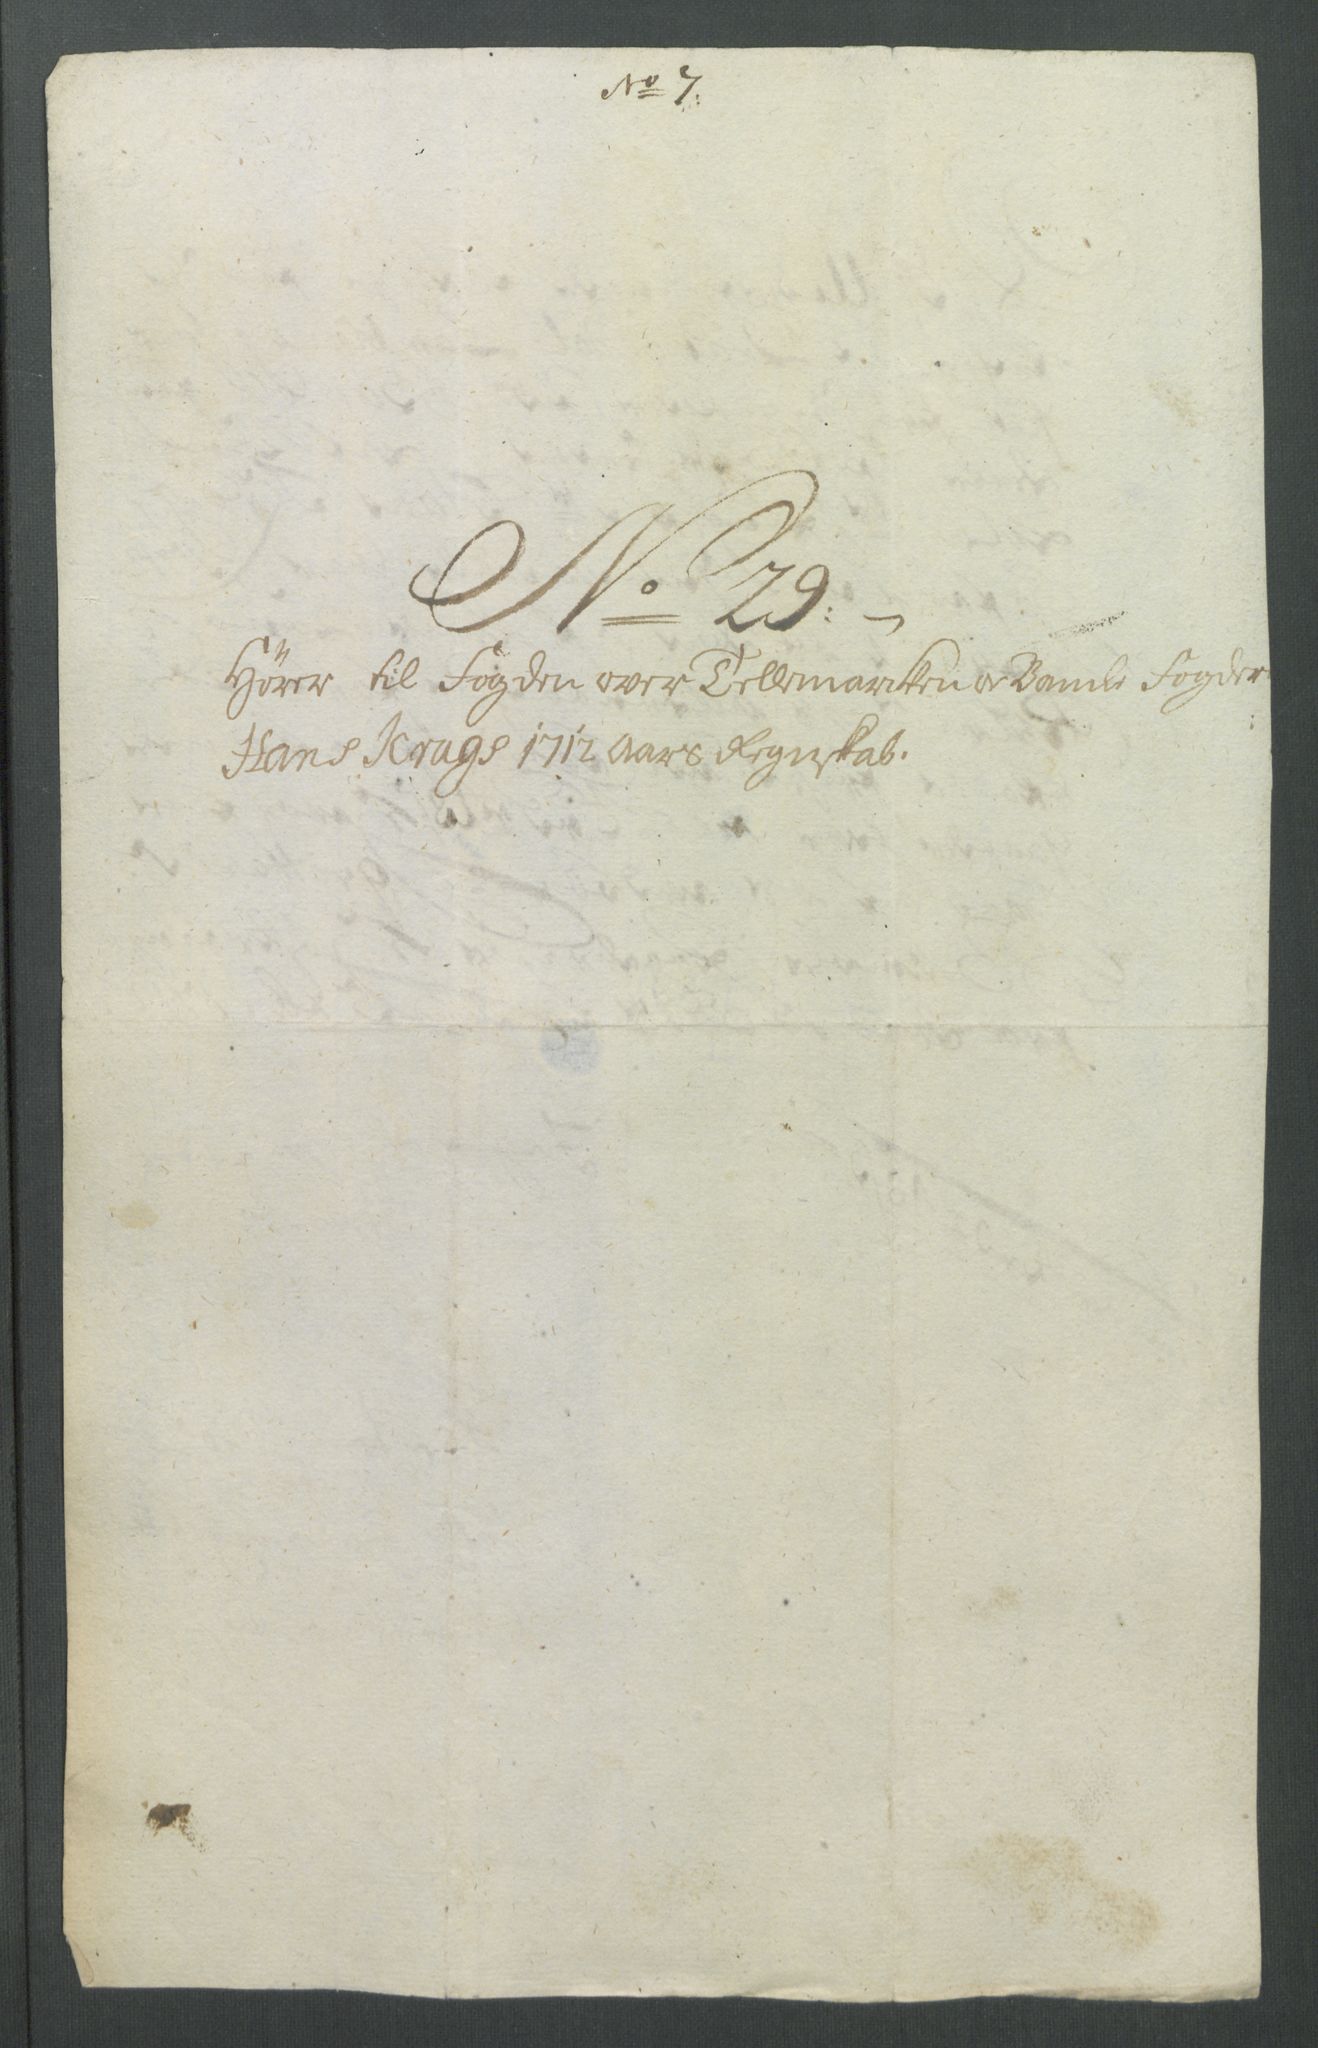 No 7.
No 29.
Hörer til Fogden over Tellemarcken oc Bamle Fogderi
Hans Krags 1712 Aars Regnskab.